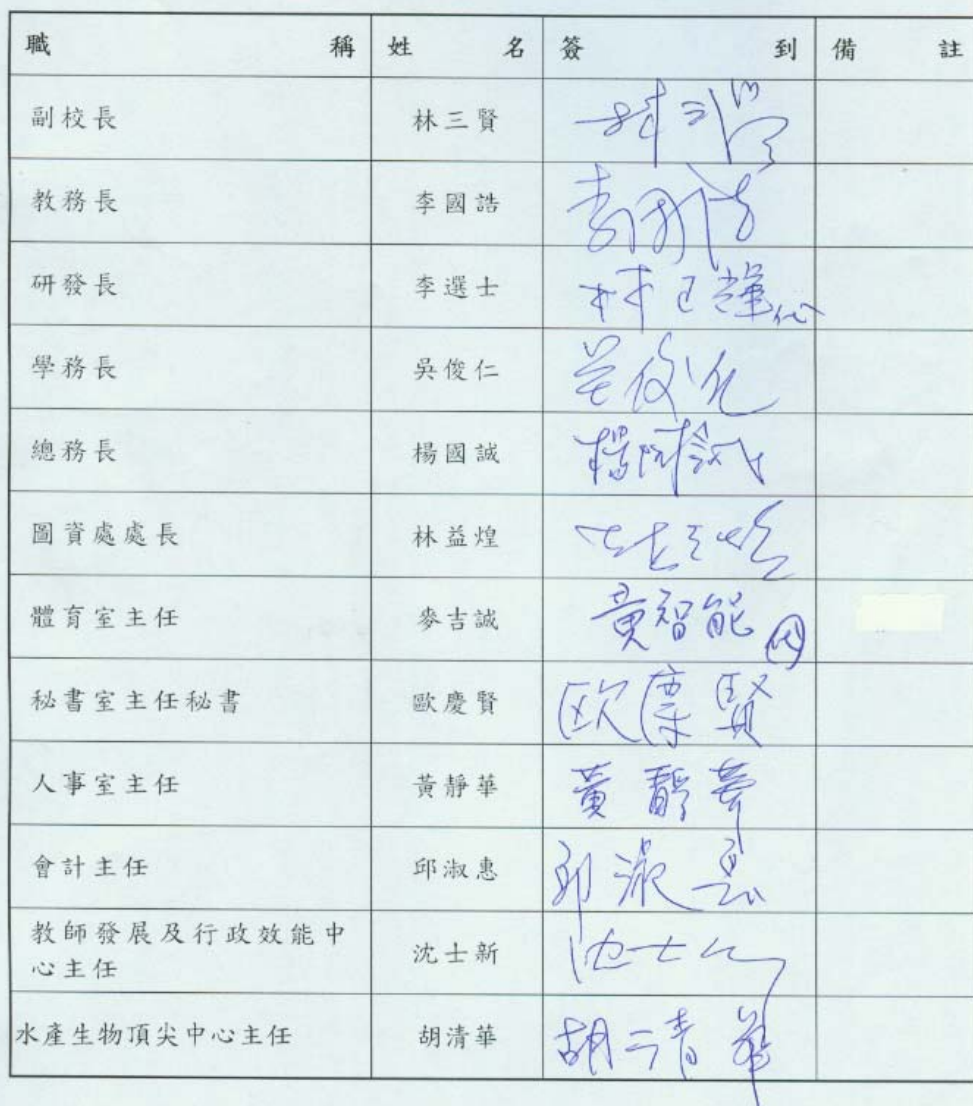 職稱 姓名 簽到 備註
副校長 林三賢
教務長 李國誥
研發長 李選士 代
學務長 吳俊仁 吳俊仁
總務長 楊國誠 楊國誠
圖資處處長 林益煌
體育室主任 麥吉誠 黃智能 代
秘書室主任秘書 歐慶賢 欧慶賢
人事室主任 黃靜華 黃靜華
會計主任 邱淑惠 邱淑惠
教師發展及行政效能中
心主任 沈士新 沈士新
水產生物頂尖中心主任 胡清華 胡清華